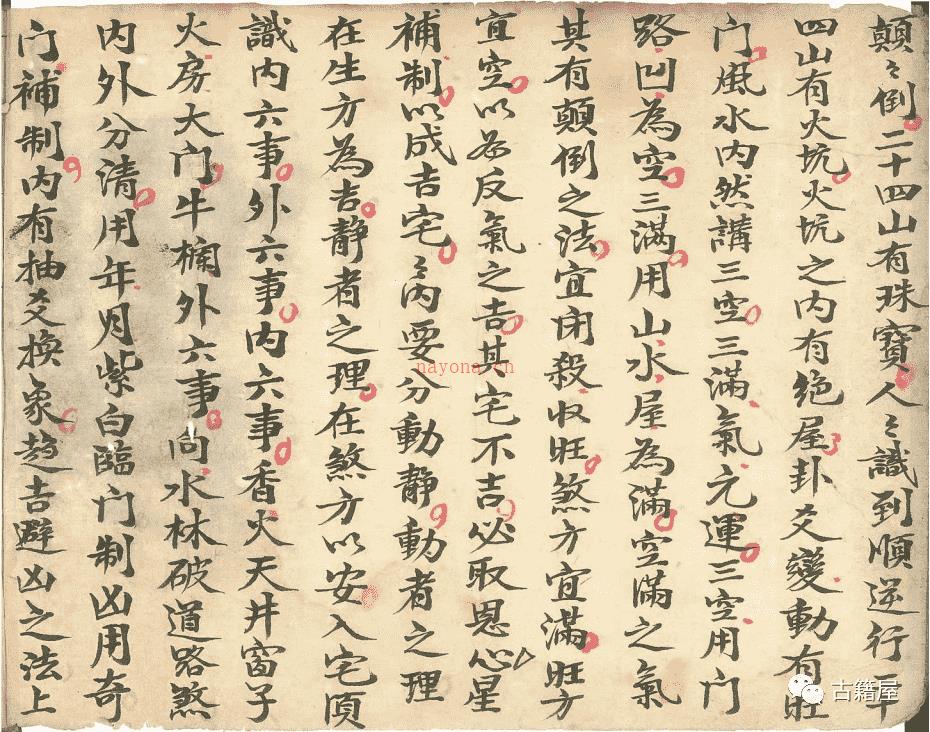 顛〻倒二十四山有珠寶人〻識到順逆行二十
四山有火坑火坑之内有绝屋卦爻變動有旺
门風水内然講三空三滿氣元運三空用门
路凹為空三滿用山水屋為滿空滿之氣
其有顛倒之法宜闭殺収旺煞方宜滿旺方
宜空以為反氣之吉其宅不吉必取恩心星
補制以成吉宅〻内要分動静動者之理
在生方為吉静者之理在煞方以安入宅須
識内六事外六事内六事香火天井窗子
火房大门牛欄外六事向水林破道路煞
内外分清用年月紫白臨门制凶用奇
门補制内有抽爻換象趋吉避凶之法上
nayona.cn
古籍屋